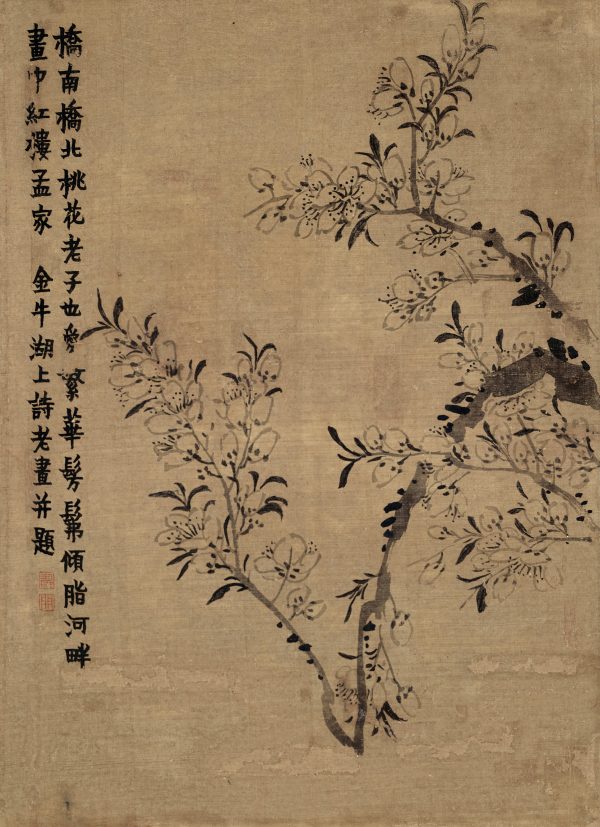 橋南橋北桃花老子也愛繁華髣髴傾脂河畔
畫中紅樓孟家 金牛湖上詩老畫并題